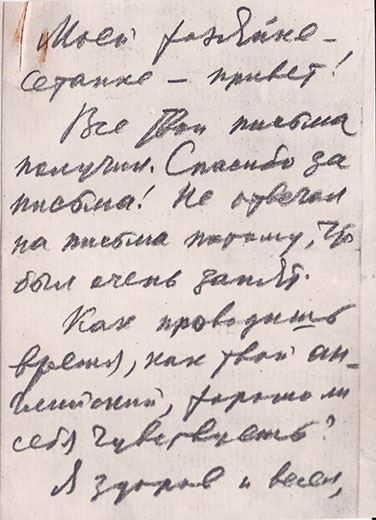 Моей хозяйке-
сетанке – привет!
Все твои письма
получил. Спасибо за
письма! Не отвечал
на письма потому, что
был очень занят.
Как проводишь
время, как твой ан-
глийский, хорошо ли
себя чувствуешь?
Я здоров и весел,